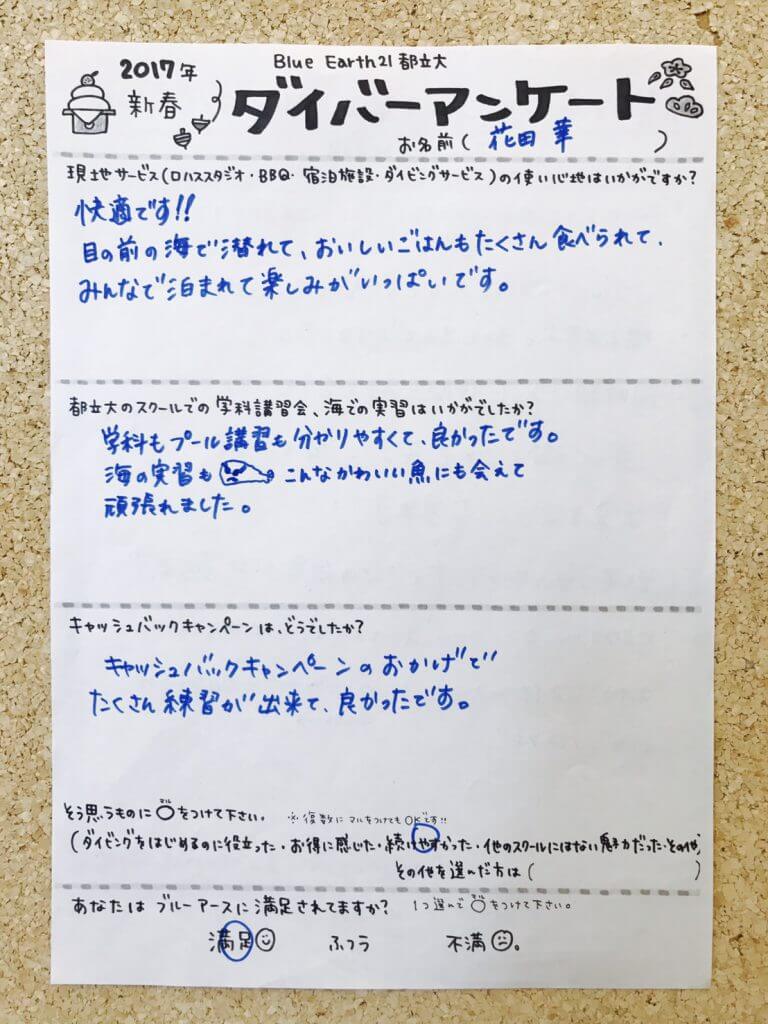 2017年
新春
Blue Earth21都立大
ダイバーアンケート
お名前(花田 華)
現地サービス(ロハススタジオ・BBQ・宿泊施設・ダイビングサービス)の使い心地はいかがですか?
快適です!!
目の前の海で潜れて、おいしいごはんもたくさん食べられて、
みんなで泊まれて楽しみがいっぱいです。
都立大のスクールでの学科講習会、海での実習はいかがでしたか?
学科もプール講習も分かりやすくて、良かったです。
海の実習も こんなかわいい魚にも会えて
頑張れました。
キャッシュバックキャンペーンは、どうでしたか?
キャッシュバックキャンペーンのおかげで
たくさん練習が出来て、良かったです。
そう思うものに○をつけて下さい。 ※複数にマルをつけてもOKです!!
(ダイビングをはじめるのに役立った・お得に感じた・続けやすかった・他のスクールにはない魅力だった・その他、
その他を選んだ方は( )
あなたはブルーアースに満足されてますか? 1つ選んで○をつけて下さい。
満足 ふつう 不満。